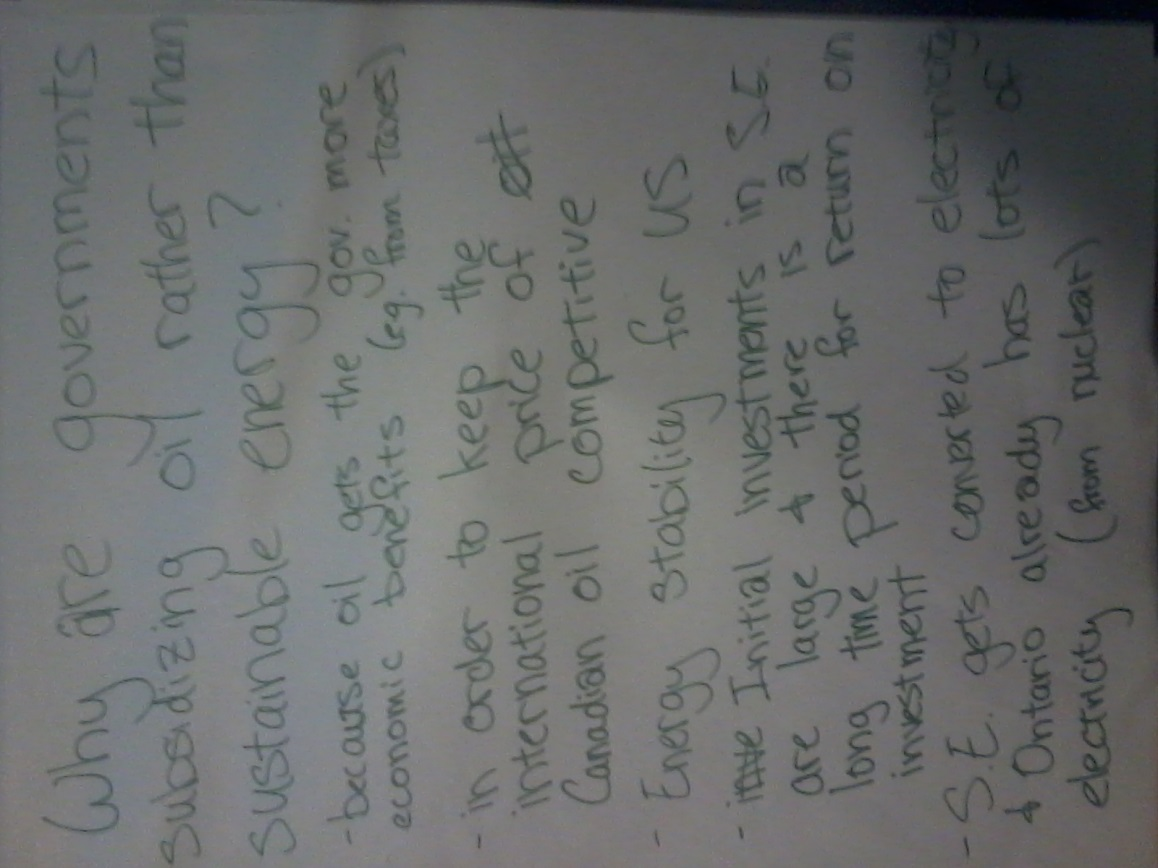 Why are governments
subsidizing oil rather than
sustainable energy?
- because oil gets the gov. more
economic benefits (eg. from taxes)
- in order to keep the
international price of
Canadian oil competitive
- Energy stability for US
- Initial investments in S.E.
are large & there is a
long time period for return on
investment
- S.E. gets converted to electricity
& Ontario already has lots of
electricity (from nuclear)